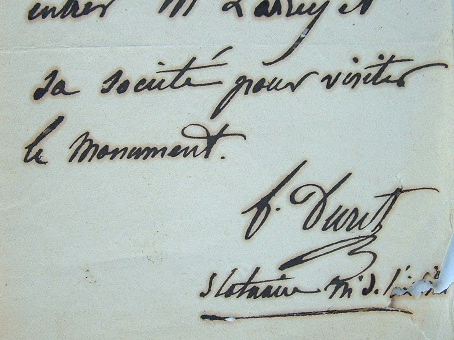 entrer Mr Larrey et
sa société pour visiter
le monument.
f. Duret
statuaire m. d. l'i